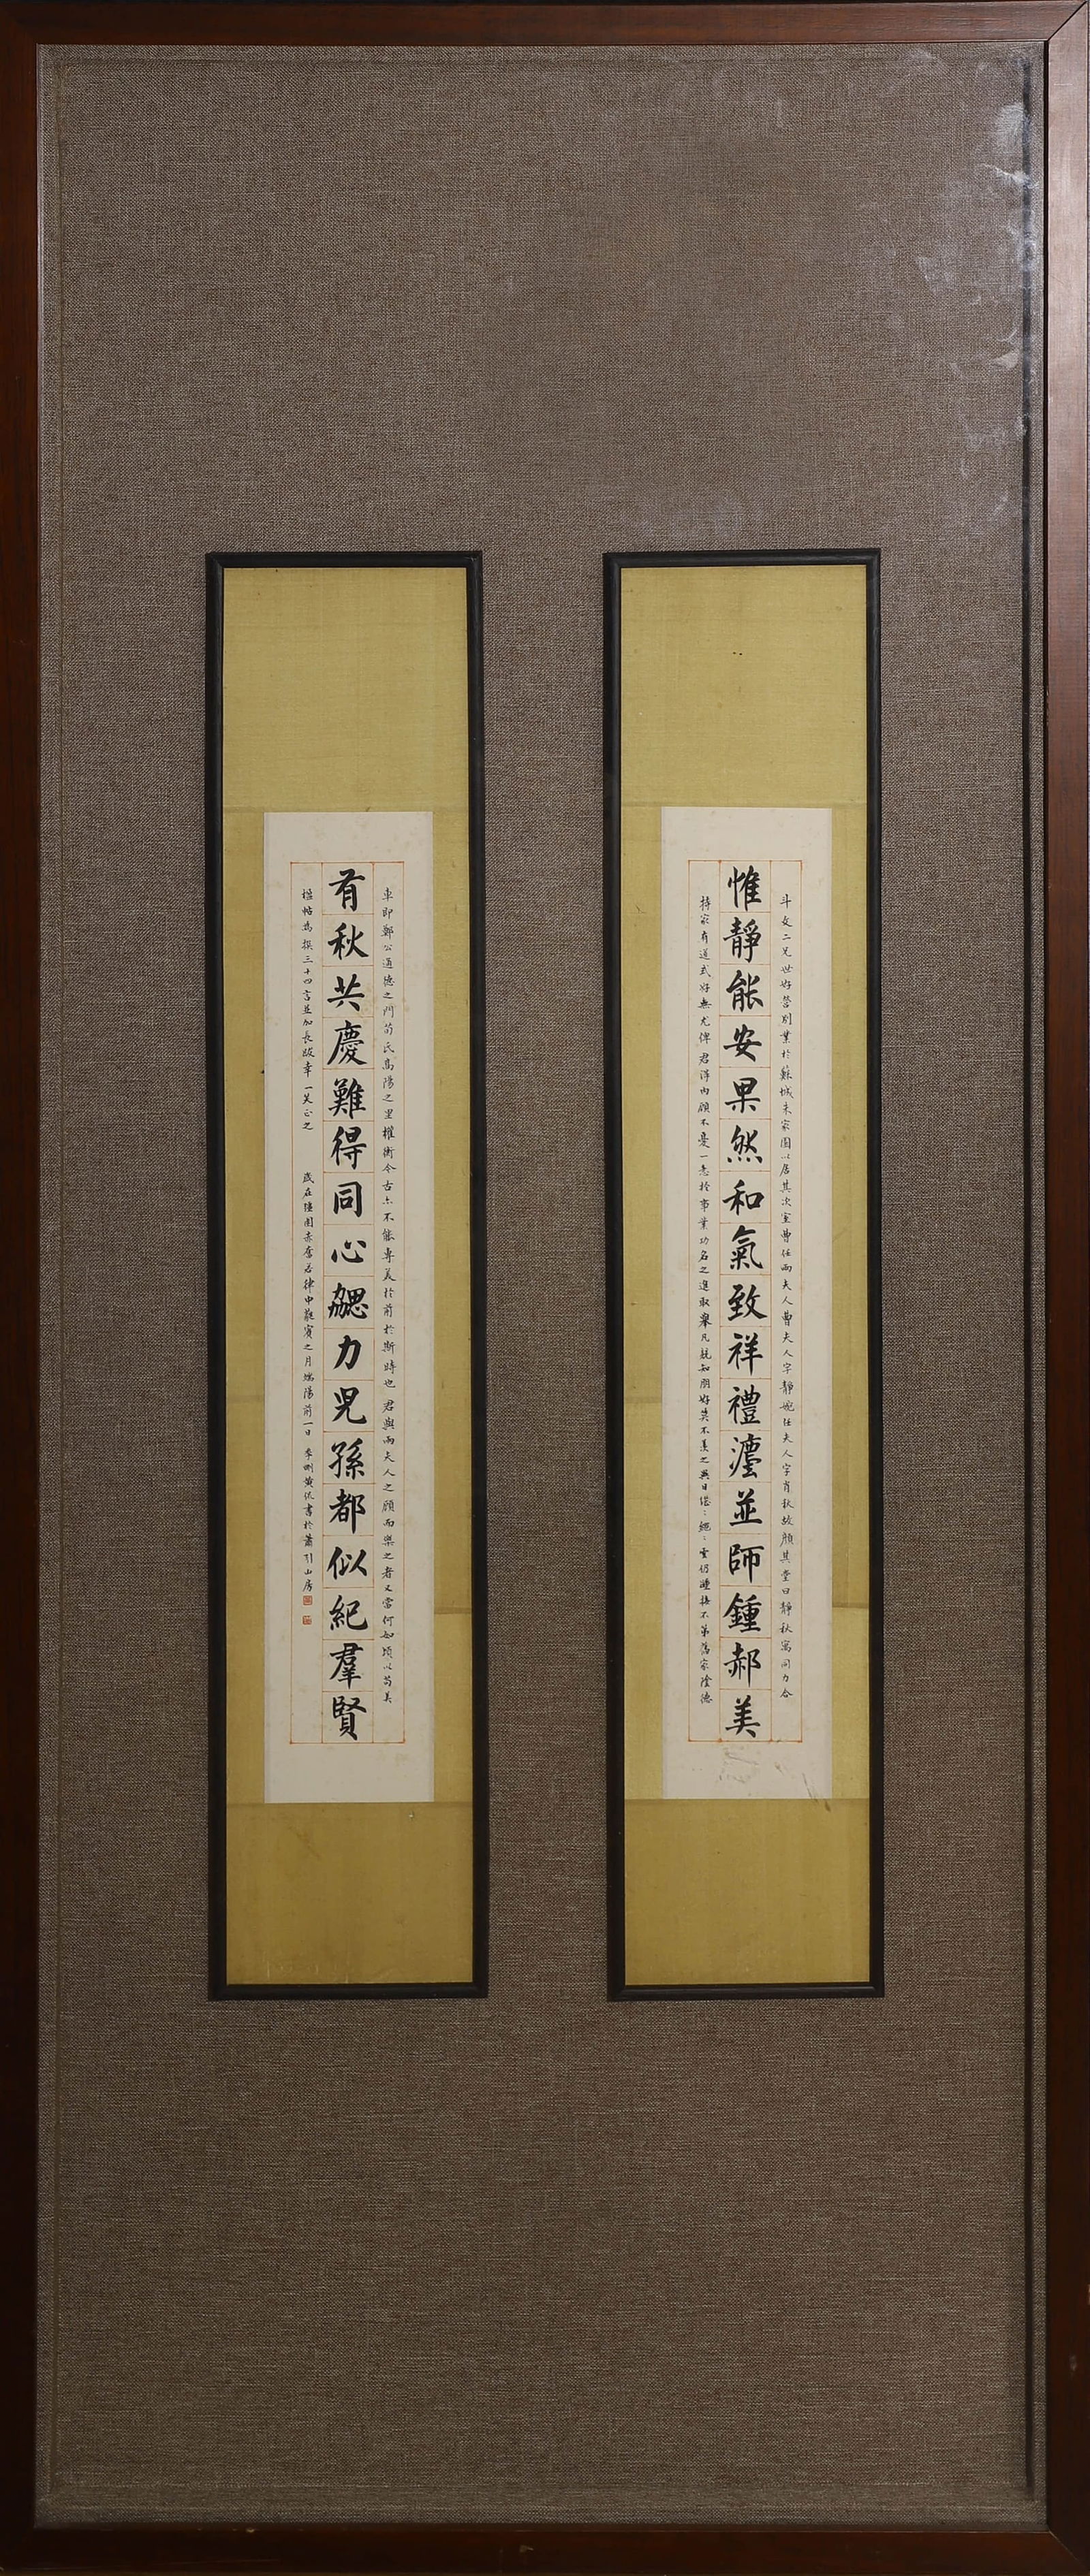 斗文二兄世好營別業於蘇城朱家園以居其次室曹任兩夫人曹夫人字靜婉任夫人字肖秋故顏其堂曰靜秋寓同力合
惟靜能安果然和氣致祥禮灋並師鍾郝美
持家有道式好無尤俾君得內顧不憂一意於事業功名之進取舉凡親知朋好莫不羨之異日繩繩雲仍踵接不第舊家陰德
車即鄭公通德之門荀氏高陽之里權衡今古亦不能專美於前於斯時也君與兩夫人之顧而樂之者又當何如頃以
有秋共慶難得同心勰力兒孫都似紀羣賢
楹帖為撰三十四言並加長跋幸一笑正之
歲在彊圉赤奮若律中蕤賓之月端陽前一日
書於蕭引山房